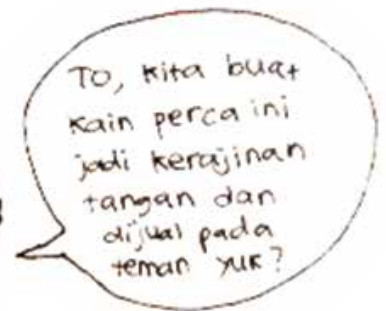 To, kita buat
kain perca ini
jadi kerajinan
tangan dan
dijual pada
teman yuk?